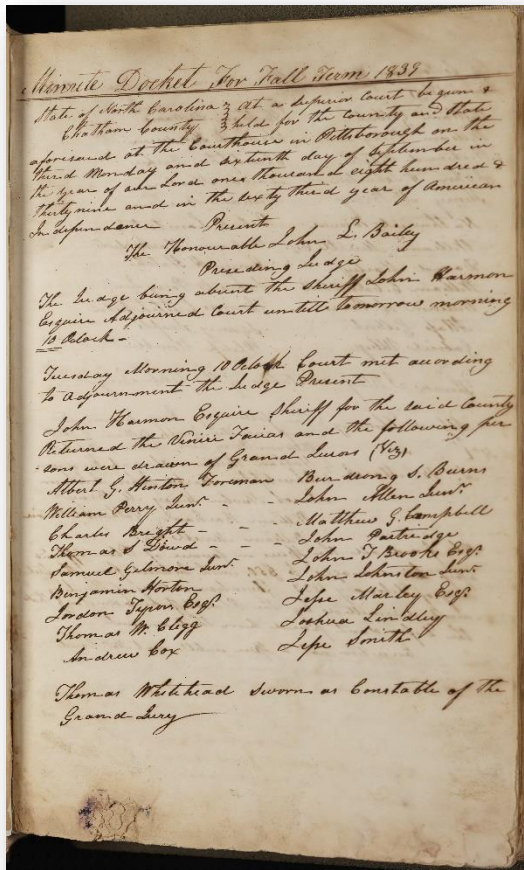 Minute Docket For Fall Term 1839
State of North Carolina } At a superior court begun &
Chatham County } held for the county and state
aforesaid at the Courthouse in Pittsborough on the
third Monday and sixteenth day of September in
the year of our Lord one thousand eight hundred &
thirty nine and in the sixty third year of American
Independance Present
The Honourable John L. Bailey
Presiding Judge
The Judge being absent the sheriff John Harmon
Esquire Adjourned Court untill tomorrow morning
10 Oclock -
Tuesday Morning 10 Oclock Court met according
to adjournment the Judge Present
John Harmon Esquire Sheriff for the said County
Returned the Veniri Facias and the following per
-sons were drawn of Grand Jurors (Viz)
Albert G. Hinton Foreman Burdrong S. Burns
William Perry Junr. - - John Allen Junr.
Charles Bright - - - Matthew G. Campbell
Thomas S Dowd - - - John Partridge
Samuel Gilmore Junr. John T Brooks Esqr.
Benjamin Horton John Johnston Junr.
Jordon Tysor Esqr. Jesse Marley Esqr.
Thomas W. Clegg Joshua Lindley
Andrew Cox Jesse Smith
Thomas Whitehead sworn as Constable of the
Grand Jury